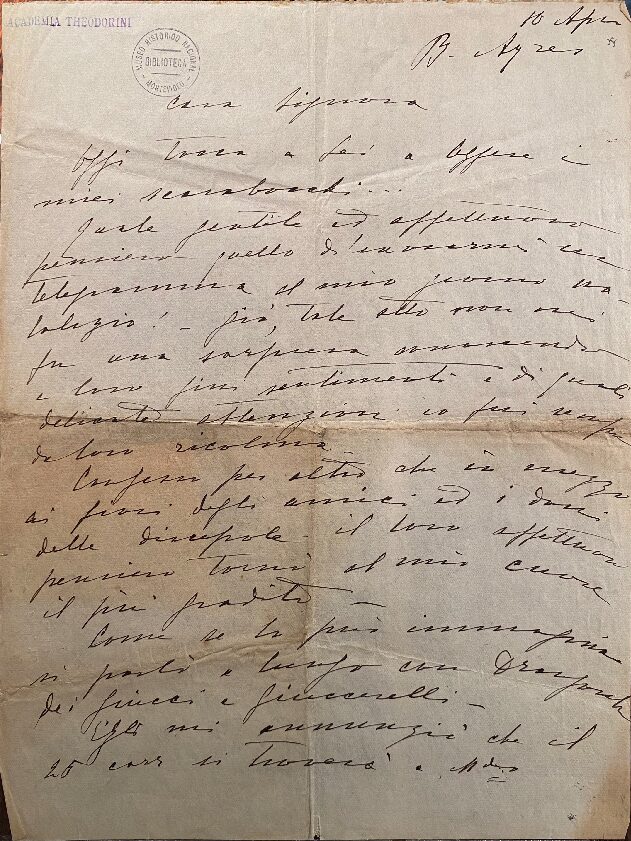 ACADEMIA THEODORINI
MUSEO HISTORICO NACIONAL
BIBLIOTECA
MONTEVIDEO
10
B. Ayres
Cara Signora
Oggi tocca a Lei a leggere i
miei scarabocchi...
gentile ed affettuoso
pensiero quello d'inviarmi un
telegramma al mio giorno na-
talizio! - già, tale atto non mi
fu una sorpresa conoscendo
i loro fini sentimenti e di quali
delicate attenzioni io fui sempre
da loro ricolma
Confesso per altro che in mezzo
ai fiori degli amici ed i doni
delle discepole - il loro affettuoso
pensiero tornò al mio cuore
il più gradito -
Come se lo può immaginare
si parlò a lungo con
dei Giucci e Giuccarelli -
Egli mi annunziò che il
25 corr si troverà a